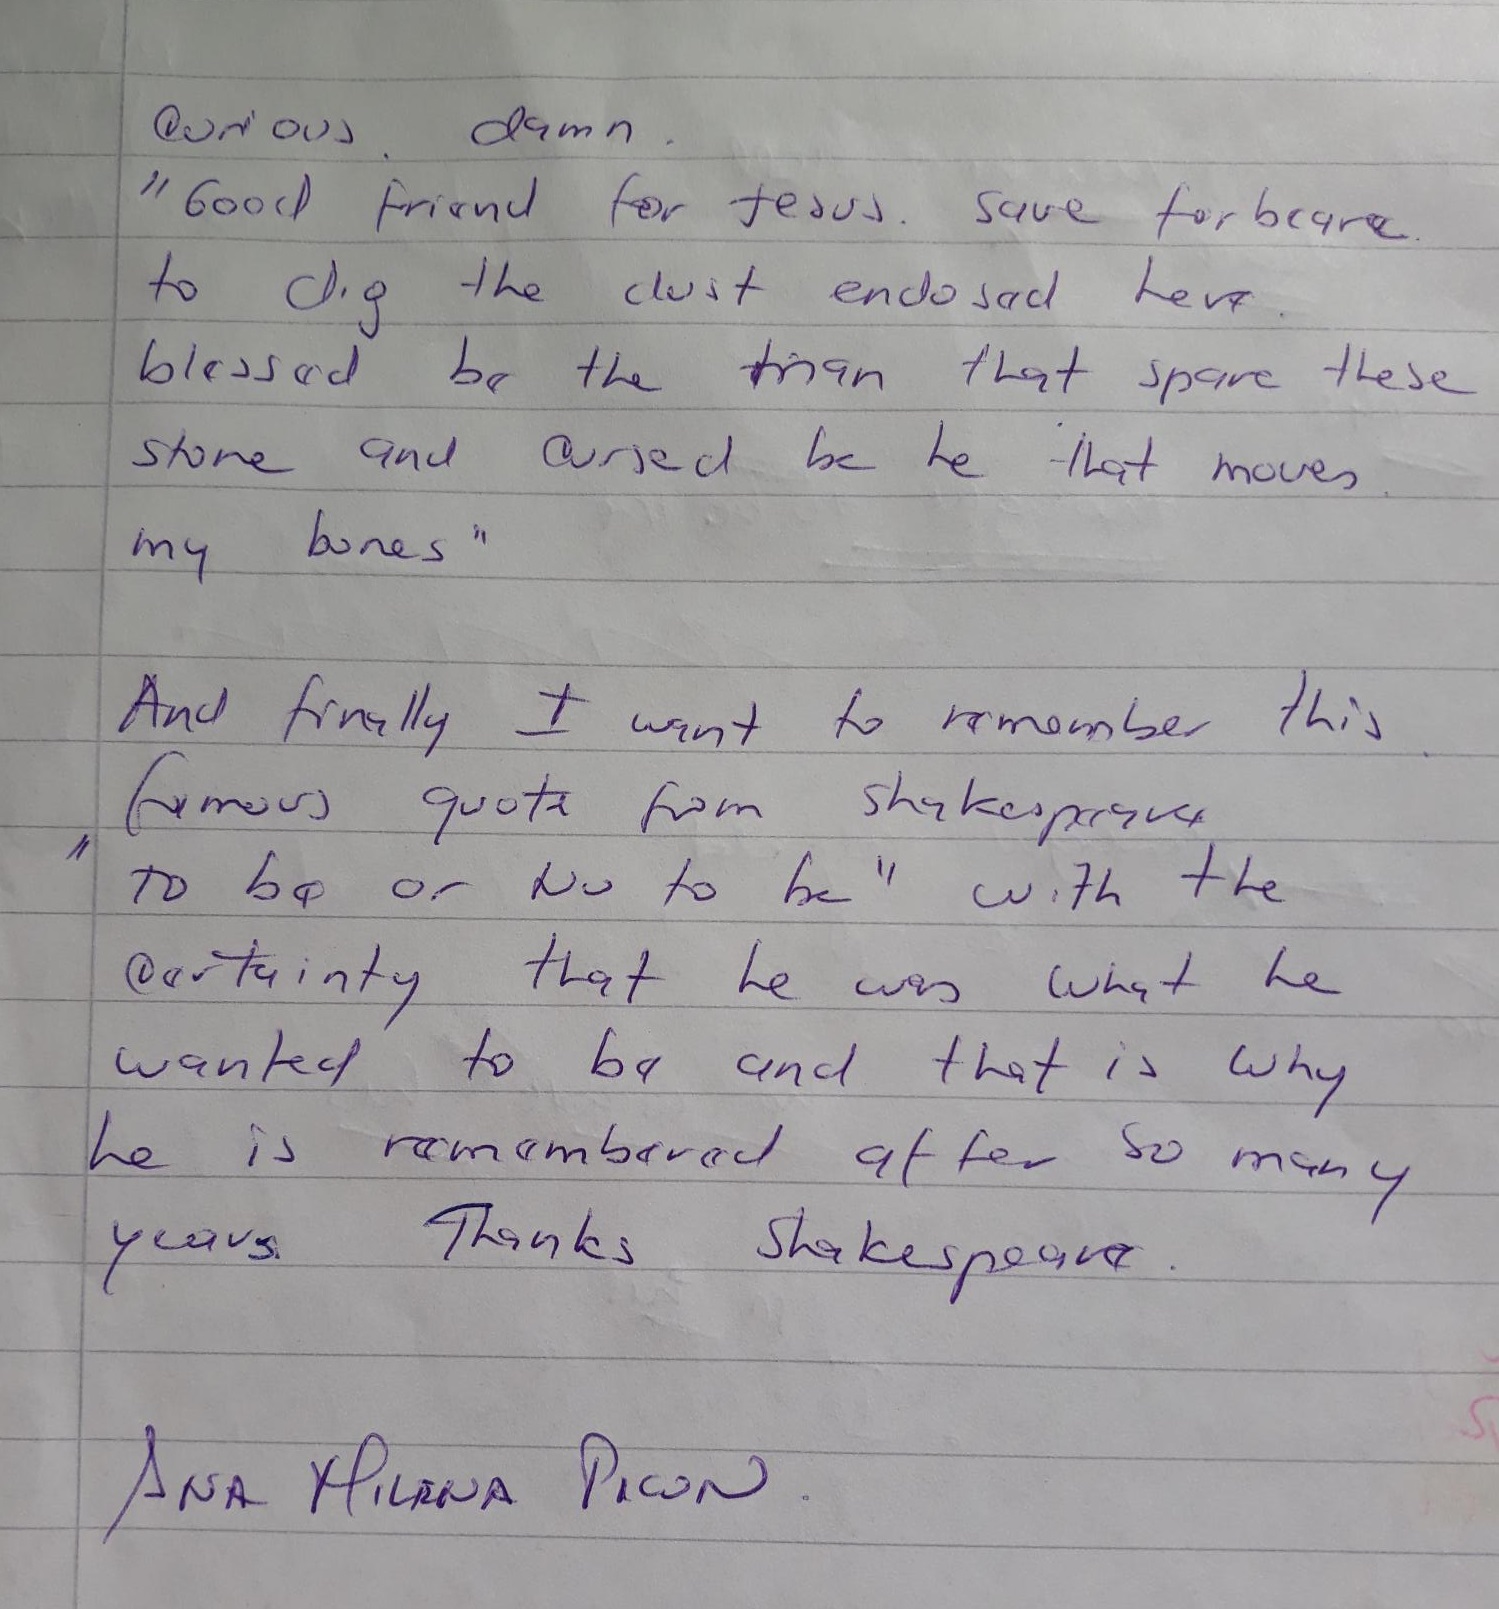 curious. damn.
"Good friend for Jesus. save forbeare.
to dig the dust enclosed here.
blessed be the man that spare these
stone and cursed be he that moves.
my bones"
And finally I want to remember this.
famous quote from Shakespeare
"To be or No to be" with the
certainty that he was what he
wanted to be and that is why
he is remembered after so many
years. Thanks Shakespeare.
ANA MILENA PICON.